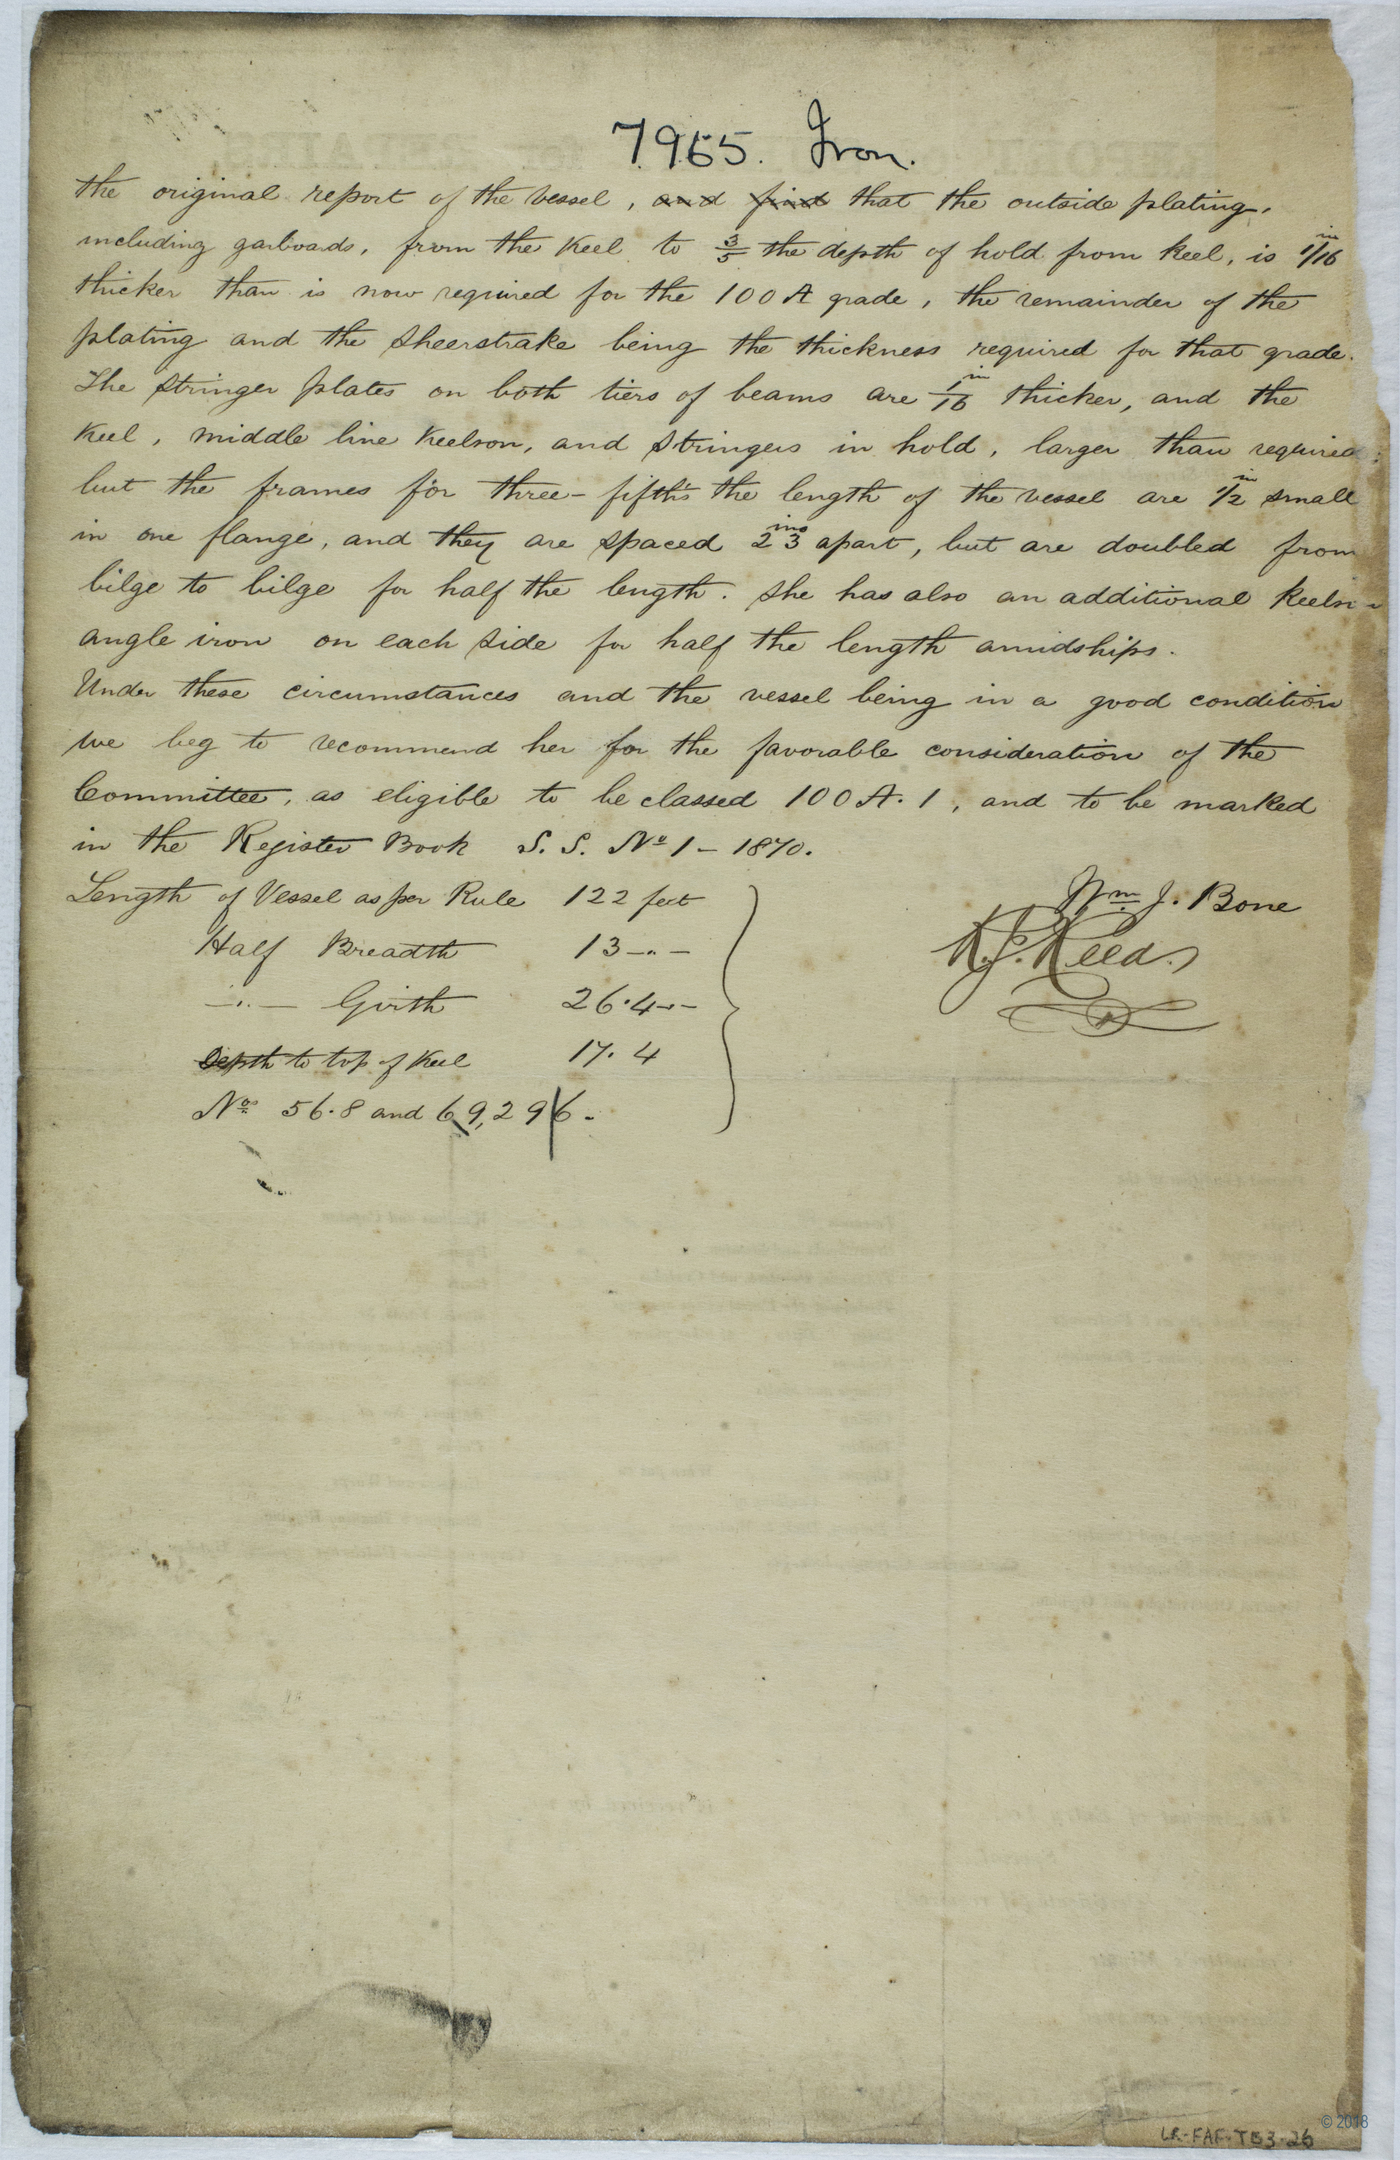 7965. Iron.
the original report of the vessel, and find that the outside plating,
including garboards, from the Keel to 3/5 the depth of hold from keel, is 1/16 in
thicker than is now required for the 100 A grade, the remainder of the
plating and the Sheerstrake being the thickness required for that grade.
The Stringer plates on both tiers of beams are 1/16 in thicker, and the
Keel, middle line Keelson, and Stringers in hold, larger than required;
but the frames for three-fifths the length of the vessel are 1/2 in small
in one flange, and they are spaced 23 ins apart, but are doubled from
bilge to bilge for half the length. She has also an additional Keelson
angle iron on each side for half the length amidships.
Under these circumstances and the vessel being in a good condition
we beg to recommend her for the favorable consideration of the
Committee, as eligible to be classed 100 A.1, and to be marked
in the Register Book S.S. No 1 - 1870.
Length of Vessel as per Rule 122 feet
Wm. J. Bone
Half Breadth 13 -"-
R.J. Reed.
-"- Girth 26.4 -"-
Depth to top of Keel 17.4
Nos. 56.8 and 69,296.
© 2018
LR-FAF-TB3-26